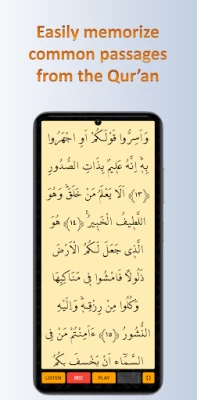 Easily memorize
common passages
from the Qur'an
وَاَسِرُّوا قَوْلَكُمْ اَوِ اجْهَرُوا
بِهٖۜ اِنَّهُ عَلٖيمٌ بِذَاتِ الصُّدُورِ
﴿١٣﴾ اَلَا يَعْلَمُ مَنْ خَلَقَۜ وَهُوَ
اللَّطٖيفُ الْخَبٖيرُ۟ ﴿١٤﴾ هُوَ
الَّذٖي جَعَلَ لَكُمُ الْاَرْضَ
ذَلُولًا فَامْشُوا فٖي مَنَاكِبِهَا
وَكُلُوا مِنْ رِزْقِهٖۜ وَاِلَيْهِ
النُّشُورُ ﴿١٥﴾ ءَاَمِنْتُمْ مَنْ فِي
السَّمَٓاءِ اَنْ يَخْسِفَ بِكُمُ
LISTEN REC PLAY